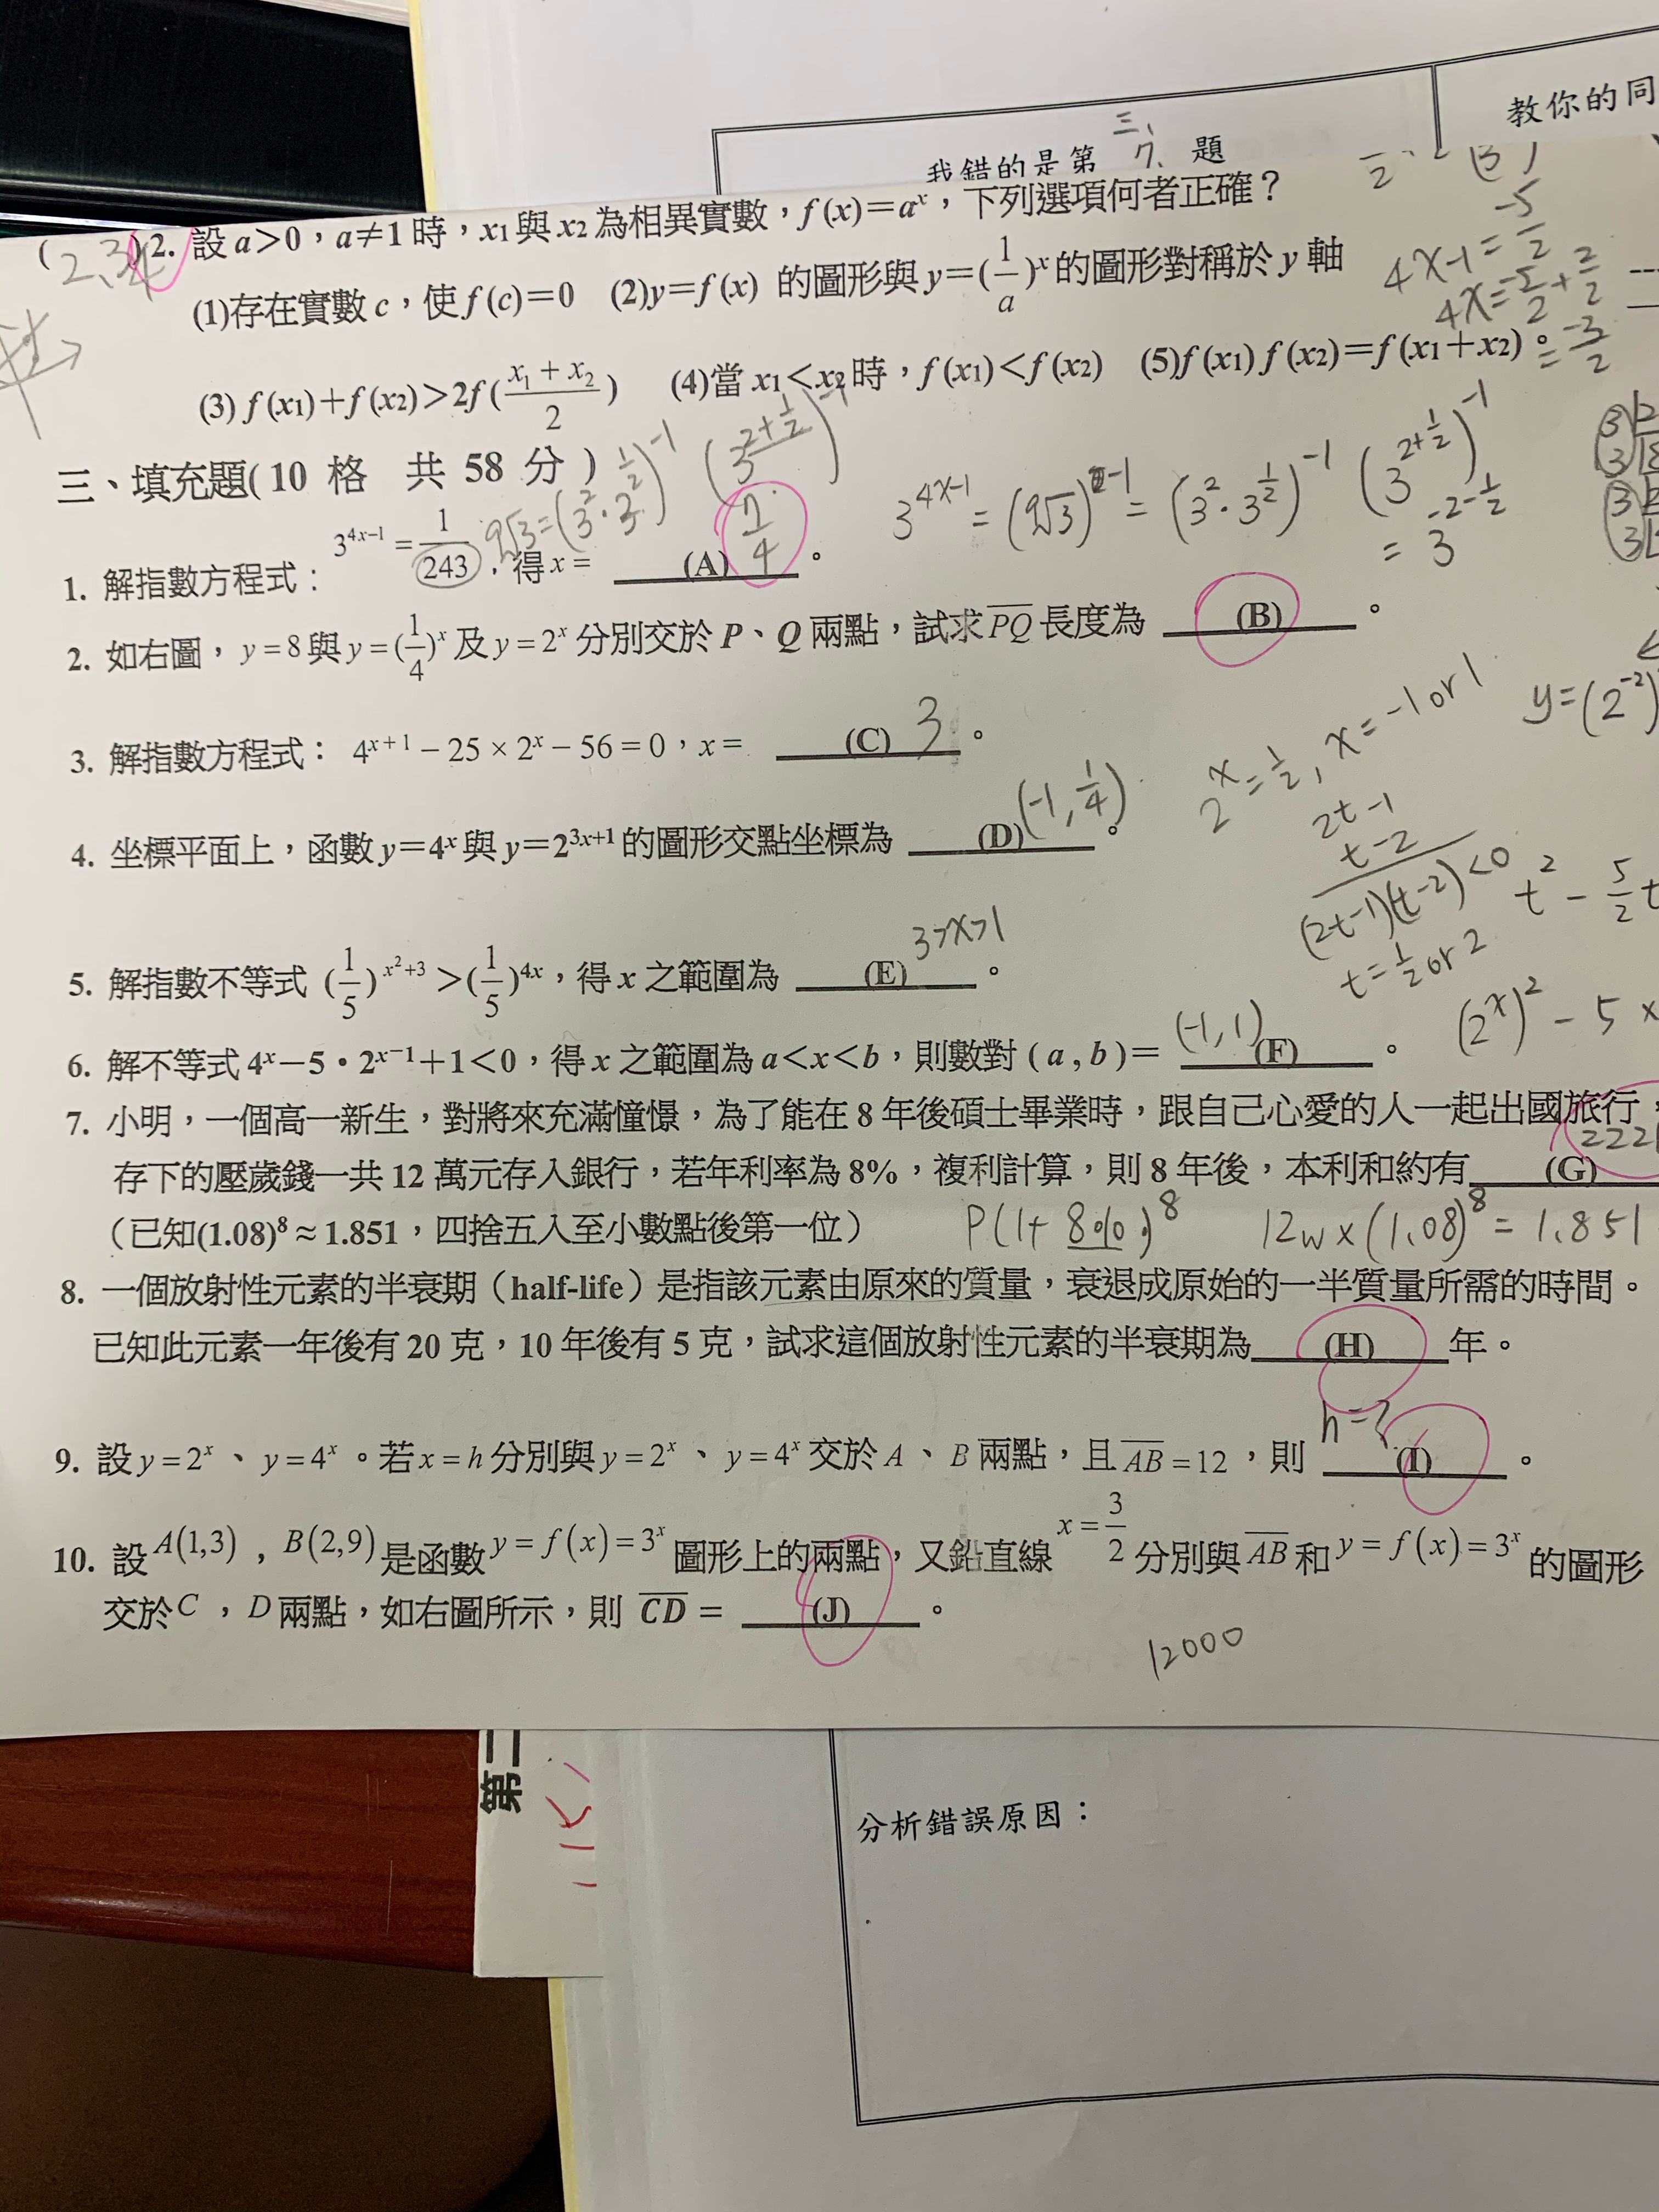 教你的同
三、
我錯的是第 7、 題
(2,3,4)2. 設 a>0，a≠1 時，x₁與 x₂ 為相異實數，f(x)=aˣ，下列選項何者正確？
(1)存在實數 c，使 f(c)=0 (2)y=f(x) 的圖形與 y=(1/a)ˣ的圖形對稱於 y 軸
4x-1=-5/2
4x=-5/2+2/2
=-3/2
(3) f(x₁)+f(x₂)>2f((x₁+x₂)/2) (4)當 x₁<x₂ 時，f(x₁)<f(x₂) (5)f(x₁) f(x₂)=f(x₁+x₂)。
三、填充題(10 格 共 58 分)
9√3=(3²·3^(1/2))⁻¹ (3^(2+1/2))⁻¹
3^(4x-1)=(9√3)⁻¹=(3²·3^(1/2))⁻¹ (3^(2+1/2))⁻¹
=3^(-2-1/2)
1. 解指數方程式： 3^(4x-1) = 1/243，得 x = (A) 。
2. 如右圖，y=8 與 y=(1/4)ˣ 及 y=2ˣ 分別交於 P、Q 兩點，試求 P̅Q̅ 長度為 (B) 。
y=(2⁻²)
3. 解指數方程式： 4ˣ⁺¹ − 25 × 2ˣ − 56 = 0，x = (C) 3 。
2ˣ=1/2, x=-1 or 1
4. 坐標平面上，函數 y=4ˣ 與 y=2³ˣ⁺¹ 的圖形交點坐標為 (D) (-1, 1/4) 。
2t-1
t-2
(2t-1)(t-2)<0 t²-5/2t
t=1/2 or 2
5. 解指數不等式 (1/5)^(x²+3) >(1/5)^(4x)，得 x 之範圍為 (E) 3>x>1 。
(2ˣ)²-5×
6. 解不等式 4ˣ−5•2ˣ⁻¹+1<0，得 x 之範圍為 a<x<b，則數對 ( a , b )= (-1,1) (F) 。
7. 小明，一個高一新生，對將來充滿憧憬，為了能在 8 年後碩士畢業時，跟自己心愛的人一起出國旅行，
存下的壓歲錢一共 12 萬元存入銀行，若年利率為 8%，複利計算，則 8 年後，本利和約有 (G) 222
（已知(1.08)⁸≈1.851，四捨五入至小數點後第一位） P(1+8%)⁸ 12w×(1.08)⁸=1.851
8. 一個放射性元素的半衰期（half-life）是指該元素由原來的質量，衰退成原始的一半質量所需的時間。
已知此元素一年後有 20 克，10 年後有 5 克，試求這個放射性元素的半衰期為 (H) 年。
9. 設 y=2ˣ 、 y=4ˣ 。若 x=h 分別與 y=2ˣ 、 y=4ˣ 交於 A 、 B 兩點，且 A̅B̅=12，則 h=? (I) 。
10. 設 A(1,3) ， B(2,9) 是函數 y=f(x)=3ˣ 圖形上的兩點，又鉛直線 x=3/2 分別與 A̅B̅ 和 y=f(x)=3ˣ 的圖形
交於 C ， D 兩點，如右圖所示，則 C̅D̅ = (J) 。
12000
第二
分析錯誤原因：